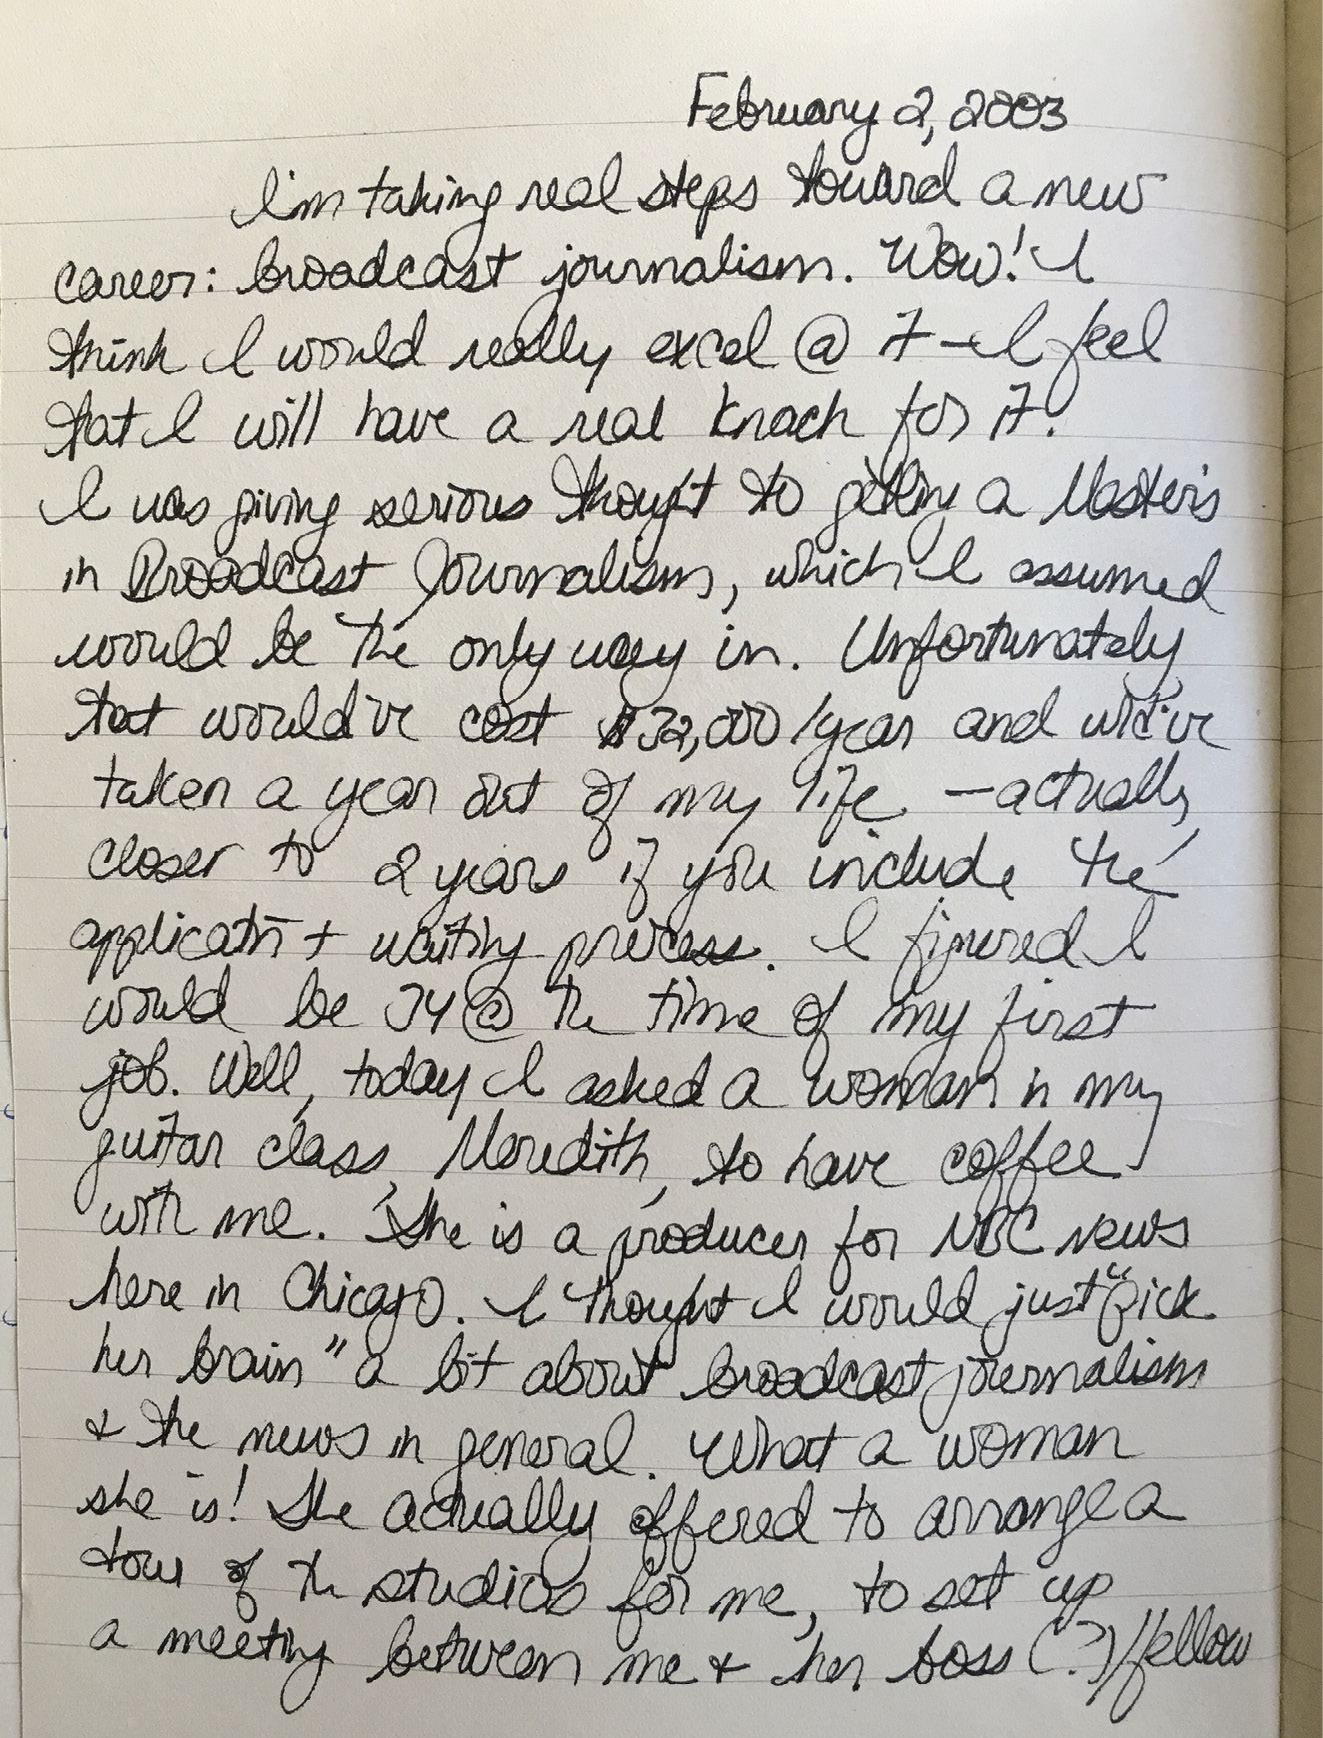 February 2, 2003
I'm taking real steps toward a new
career: broadcast journalism. Wow! I
think I would really excel @ it - I feel
that I will have a real knack for it.
I was giving serious thought to getting a Master's
in Broadcast Journalism, which I assumed
would be the only way in. Unfortunately
that would've cost $32,000/year and would've
taken a year out of my life - actually
closer to 2 years if you include the
application + waiting process. I figured I
would be 34 @ the time of my first
job. Well, today I asked a woman in my
guitar class, Meredith, to have coffee
with me. She is a producer for NBC News
here in Chicago. I thought I would just "pick
her brain" a bit about broadcast journalism
& the news in general. What a woman
she is! She actually offered to arrange a
tour of the studios for me, to set up
a meeting between me & her boss (?)/fellow